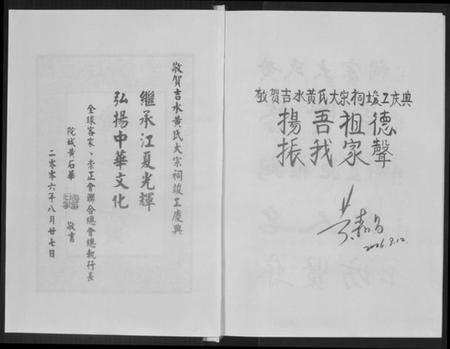 敬賀吉水黃氏大宗祠竣工慶典
揚吾祖德
振我家聲
2006.9.12
敬賀吉水黃氏大宗祠竣工慶典
繼承江夏光輝
弘揚中華文化
全球客家、崇正會聯合總會總執行長
黃石華
敬書
二零零六年八月廿七日